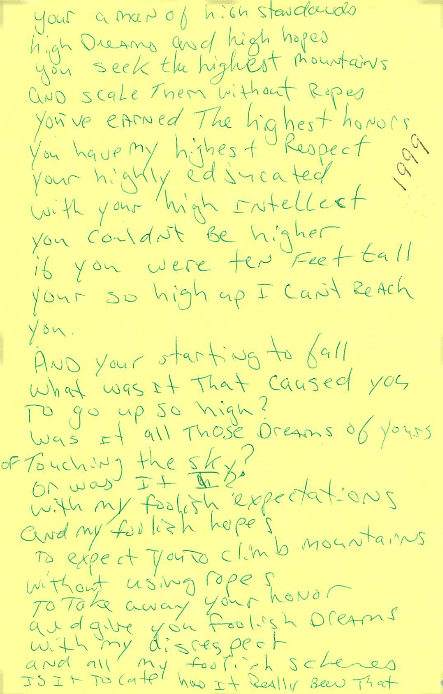 your a man of high standards
high Dreams and high hopes
you seek the highest mountains
AND scale Them without Ropes
you've earned The highest honors
You have my highest Respect
your highly edjucated
with your high Intellect
you couldn't Be higher
if you were ten Feet tall
your so high up I can't Reach
you.
AND your starting to fall
what was it That caused you
To go up so high?
was it all Those Dreams of yours
of Touching the sky?
or was It
with my foolish expectations
and my foolish hopes
To expect You To climb mountains
without using ropes
To Take away your honor
and give you foolish Dreams
with my disrespect
and all my foolish schemes
Is It To Late? how It Really Been That
1999